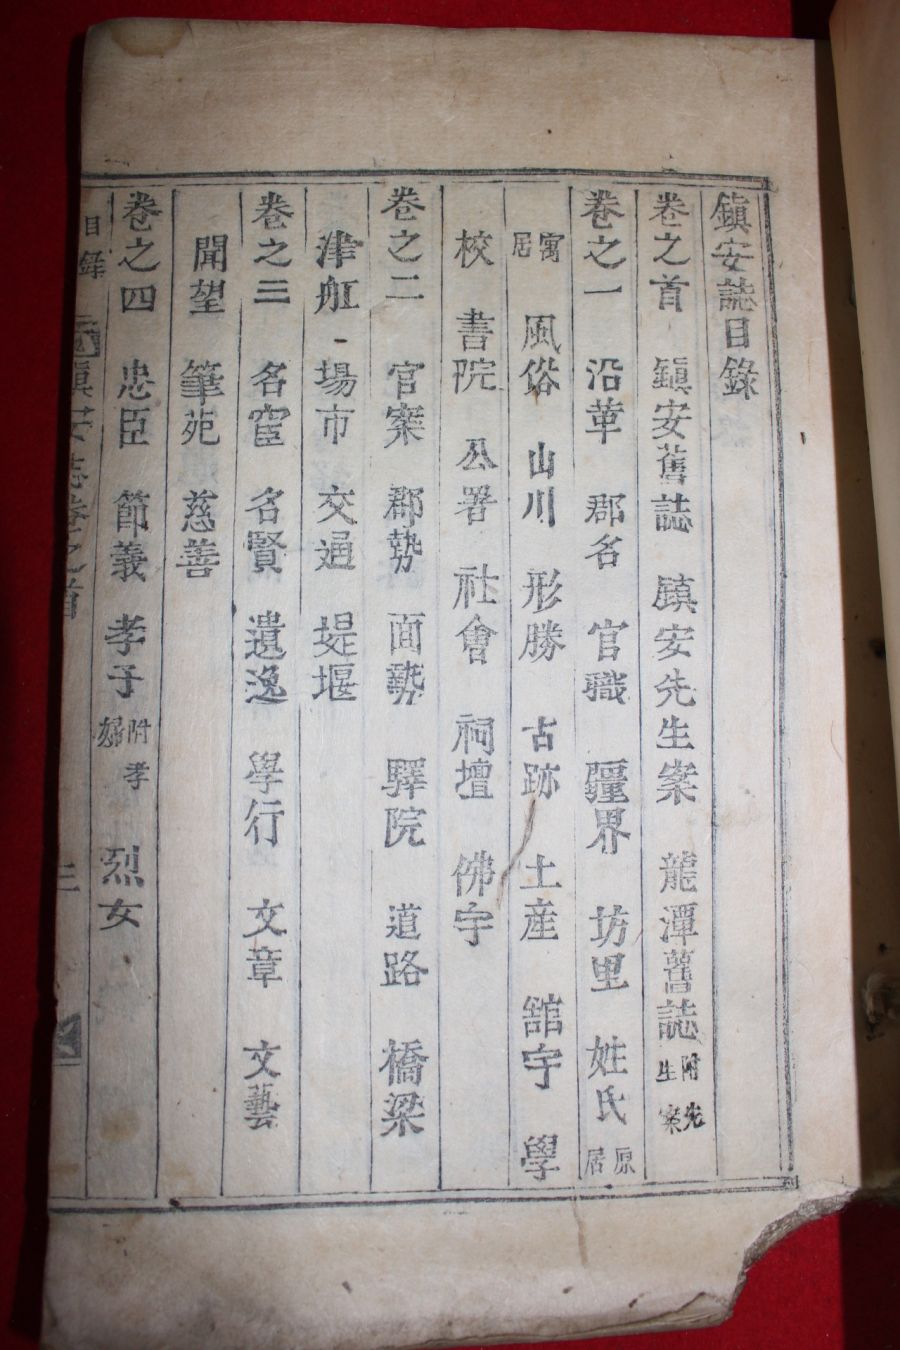 鎮安誌目錄
卷之首 鎮安舊誌 鎮安先生案 龍潭舊誌 附先生案
卷之一 沿革 郡名 官職 疆界 坊里 姓氏 原居
寓居 風俗 山川 形勝 古跡 土産 舘宇 學
校 書院 公署 社會 祠壇 佛宇
卷之二 官案 郡勢 面勢 驛院 道路 橋梁
津舡 場市 交通 堤堰
卷之三 名宦 名賢 遺逸 學行 文章 文藝
聞望 筆苑 慈善
卷之四 忠臣 節義 孝子 附孝婦 烈女
目錄
鎮安誌卷之首